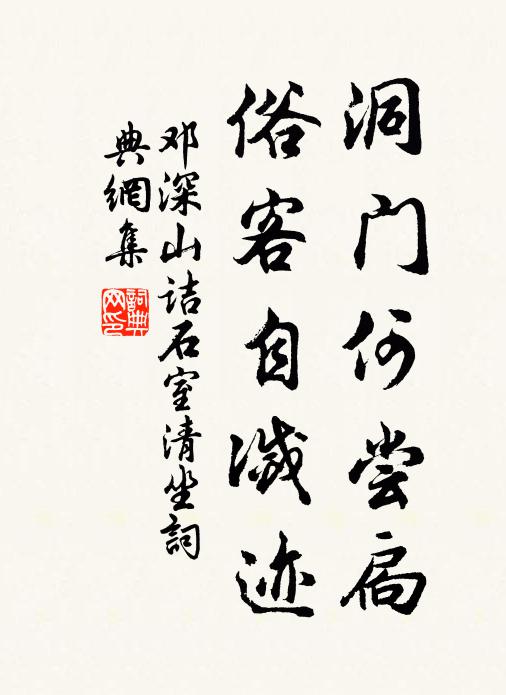 洞门何尝扃
俗客自灭迹
邓深山诘石室清坐詞
典網集
詞典
网印